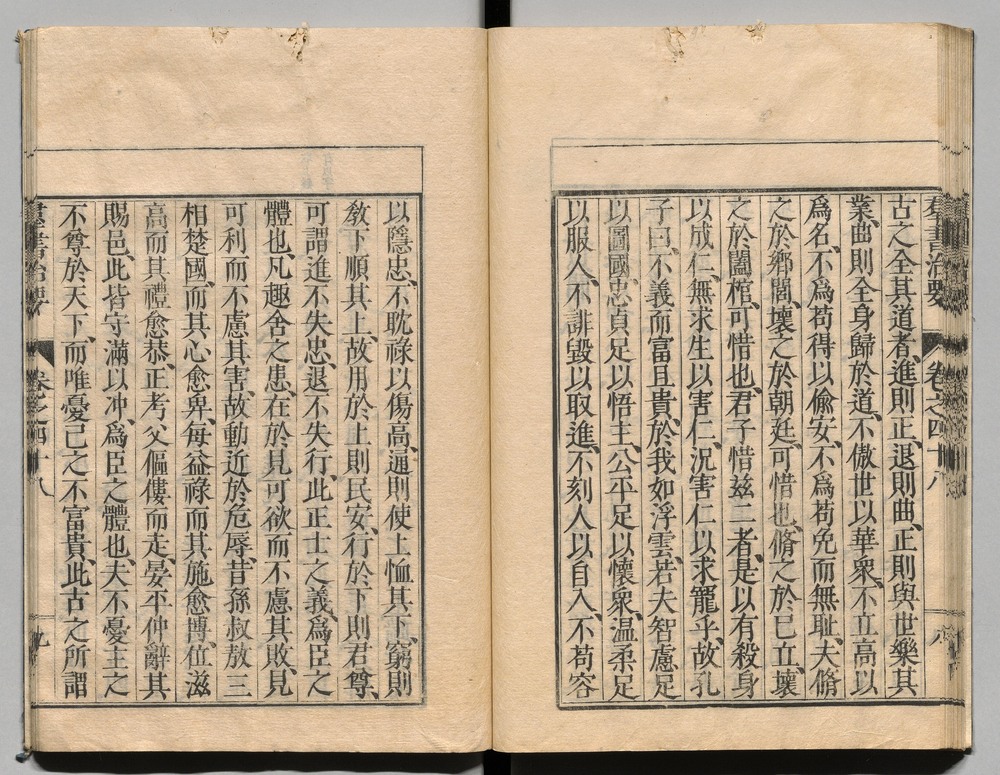 群書治要 卷之四十八 八
古之全其道者、進則正、退則曲、正則與世樂其
業、曲則全身歸於道、不傲世以華衆、不立高以
爲名、不爲苟得以偸安、不爲苟免而無耻、夫脩
之於鄕閭、壞之於朝廷、可惜也、脩之於已立、壞
之於闔棺、可惜也、君子惜兹二者、是以有殺身
以成仁、無求生以害仁、況害仁以求寵乎、故孔
子曰、不義而富且貴、於我如浮雲、若夫智慮足
以圖國、忠貞足以悟主、公平足以懷衆、温柔足
以服人、不誹毀以取進、不刻人以自入、不苟容
以隱忠、不耽祿以傷高、通則使上恤其下、窮則
敎下順其上、故用於上則民安、行於下則君尊、
可謂進不失忠、退不失行、此正士之義、爲臣之
體也、凡趣舍之患、在於見可欲而不慮其敗、見
可利而不慮其害、故動近於危辱、昔孫叔敖三
相楚國、而其心愈卑、每益祿而其施愈博、位滋
高而其禮愈恭、正考父傴僂而走、晏平仲辭其
賜邑、此皆守滿以冲、爲臣之體也、夫不憂主之
不尊於天下、而唯憂己之不富貴、此古之所謂
群書治要 卷之四十八 九